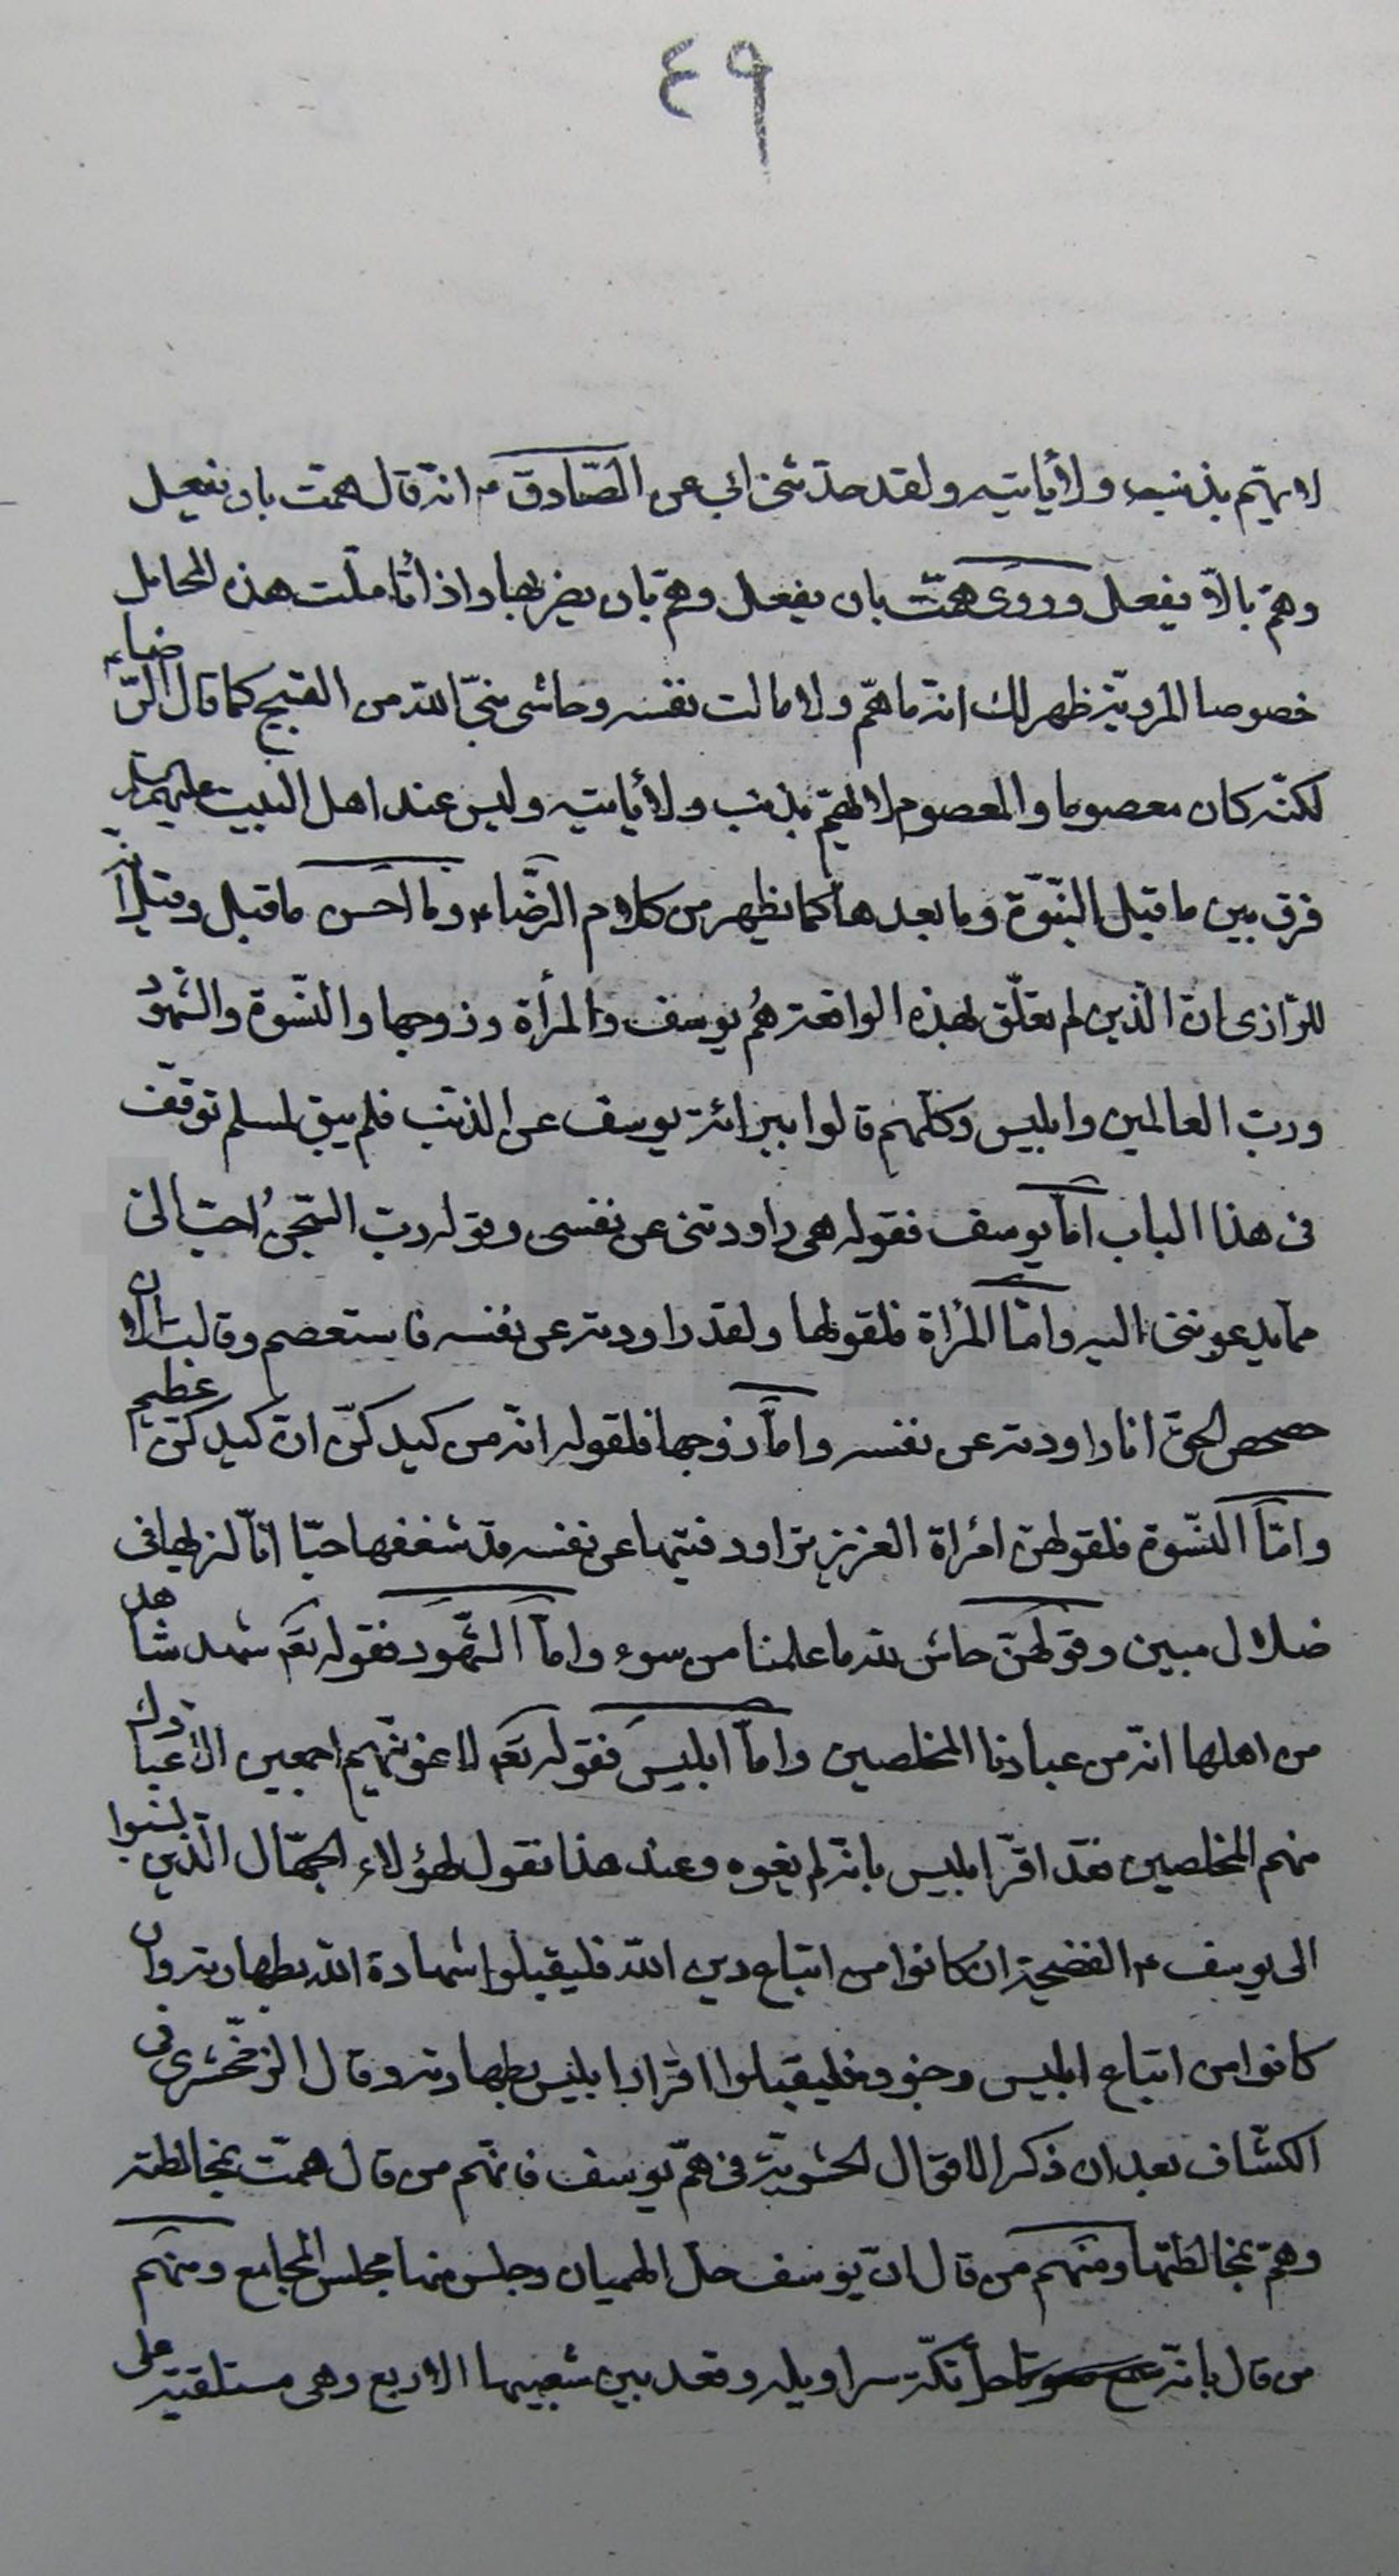 ٤٩
لا يهتم بذنب ولا يأتيه ولقد حدثني ابي عن الصّادق ع انه قال همت بان تفعل
وهمّ بالاّ يفعل وروى همّت بان يفعل وهمّ بان يضربها واذا تأملت هذه المحامل
خصوصا المرويّة ظهر لك انه ما همّ ولا مالت نفسه وحاشى نبيّ الله من القبيح كما قال الرّضاء
لكنّه كان معصوما والمعصوم لا يهمّ بذنب ولا يأتيه وليس عند اهل البيت عليهم
فرق بين ما قبل النبّوة وما بعدها كما يظهر من كلام الرّضاء وما احسن ما قيل وقيل انه
للرّازى انّ الّذين لم تعلّق بهذه الواقعة هُم يوسف والمرأة وزوجها والنّسوة والشّهود
وربّ العالمين وابليس وكلّهم قالوا ببرائة يوسف عن الذنب فلم يبق لمسلم توقّف
فى هذا الباب امّا يوسف فقوله هى راودتنى عن نفسى وقوله ربّ السّجن احبّ الىّ
ممّا يدعوننى اليه وامّا المرأة فلقولها ولقد راودته عن نفسه فاستعصم وقالت الان
حصحص الحقّ انا راودته عن نفسه وامّا زوجها فلقوله انّه من كيد كنّ انّ كيد كنّ عظيم
وامّا النّسوة فلقولهنّ امرأة العزيز تراود فتيها عن نفسه قد شغفها حبّا انّا لنريها فى
ضلال مبين وقولهنّ حاش لله ما علمنا من سوء وامّا الشّهود فقوله تعم شهد شاهد
من اهلها انّه من عبادنا المخلصين وامّا ابليس فقوله تعم لاغوينّهم اجمعين الا عبادك
منهم المخلصين فقد اقرّ ابليس بانه لم يغوه وعند هذا نقول لهؤلاء الجهّال الّذين نسبوا
الى يوسف ع الفضيحة ان كانوا من اتباع دين الله فليقبلوا شهادة الله بطهارته وان
كانوا من اتباع ابليس وجنوده فليقبلوا اقرار ابليس بطهارته وقال الزمخّشرى فى
الكشّاف بعد ان ذكر الاقوال الحشويّة فى همّ يوسف فانّهم من قال همّت بمخالطته
وهمّ بمخالطتها ومنهم من قال انّ يوسف حلّ الهميان وجلس منها مجلس المجامع ومنهم
من قال بانّه حلّ تكّة سراويله وقعد بين شعبها الاربع وهى مستلقية على